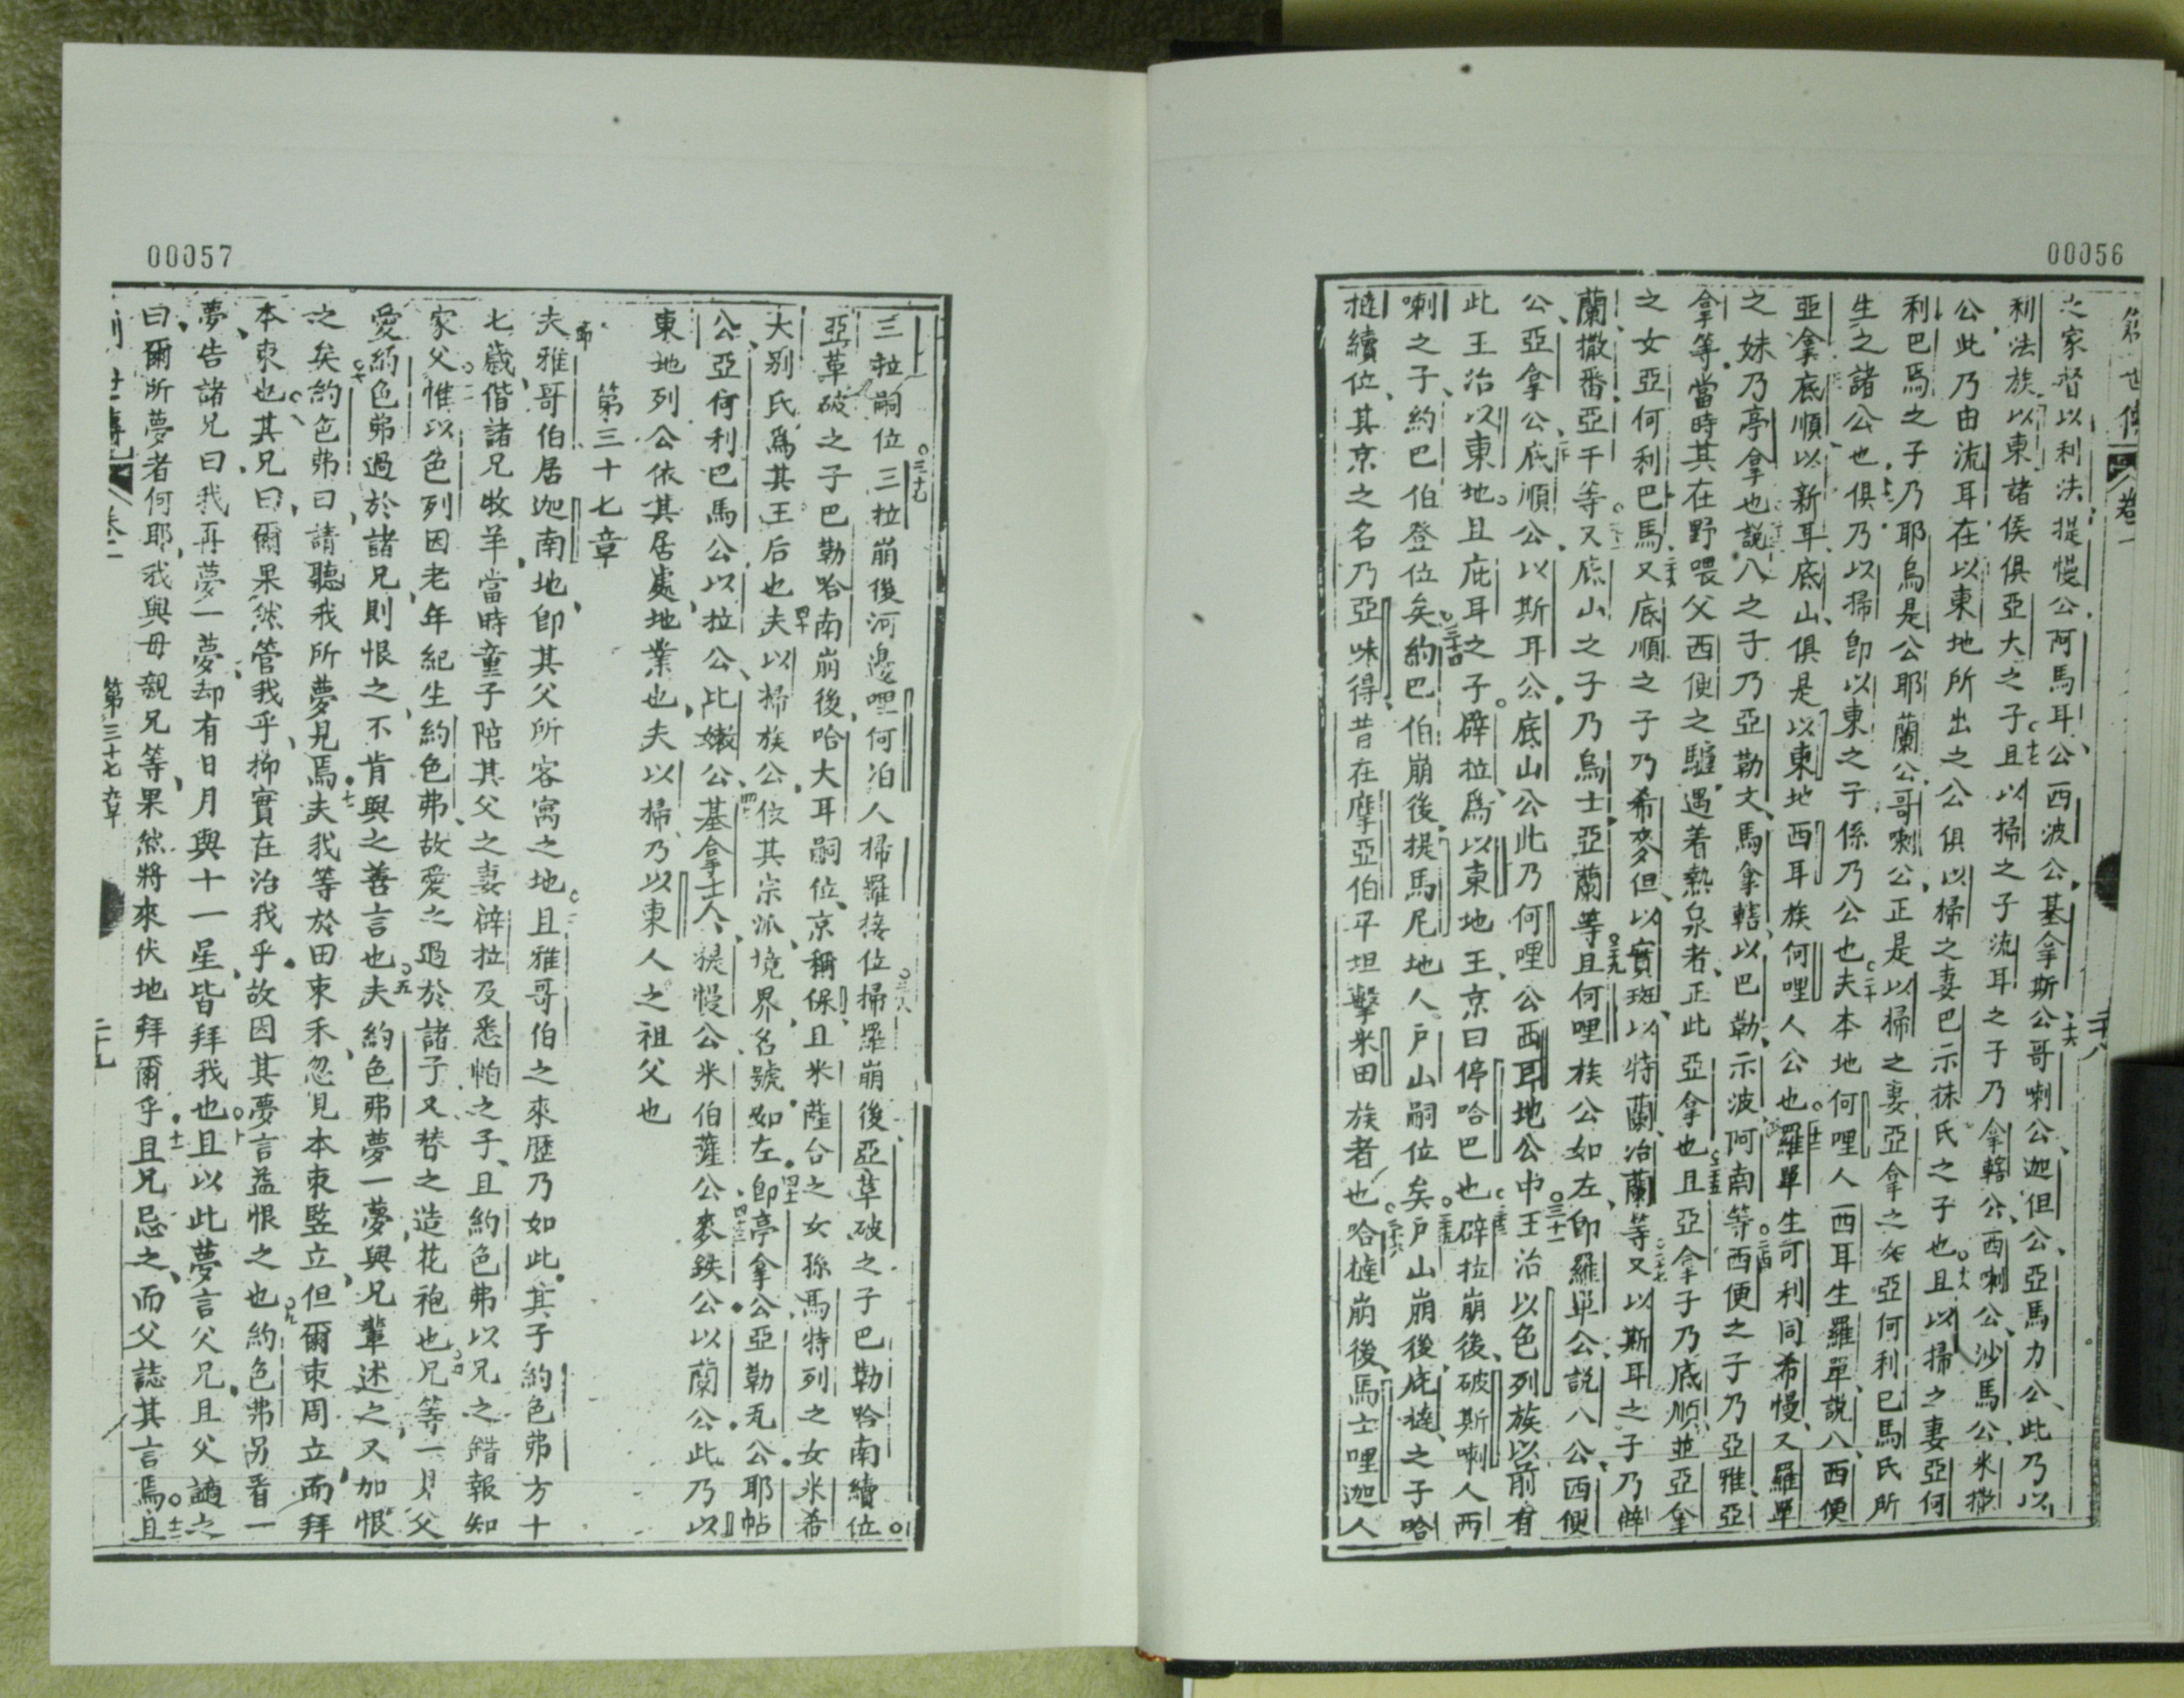 00056
之家督以利法提慢公阿馬耳公西波公基拿斯公哥喇公迦但公亞馬力公此乃以
利法族以東諸侯俱亞大之子且以掃之子流耳之子乃拿轄公西喇公沙馬公米撒
公此乃由流耳在以東地所出之公俱以掃之妻巴示抹氏之子也且以掃之妻亞何
利巴馬之子乃耶烏是公耶蘭公哥喇公正是以掃之妻亞拿之女亞何利巴馬氏所
生之諸公也俱乃以掃即以東之子係乃公也夫本地何哩人西耳生羅單說八西便
亞拿底順以新耳底山俱是以東地西耳族何哩人公也羅單生可利同希慢又羅單
之妹乃亭拿也說八之子乃亞勒文馬拿轄以巴勒示波阿南等西便之子乃亞雅亞
拿等當時其在野喂父西便之驢遇着熱泉者正此亞拿也且亞拿子乃底順並亞拿
之女亞何利巴馬又底順之子乃希麥但以實班以特蘭治蘭等又以斯耳之子乃辟
蘭撒番亞干等又底山之子乃烏士亞蘭等且何哩族公如左即羅單公說八公西便
公亞拿公底順公以斯耳公底山公此乃何哩公西耳地公中王治以色列族以前有
此王治以東地且庇耳之子辟拉為以東地王京曰停哈巴也辟拉崩後破斯喇人西
喇之子約巴伯登位矣約巴伯崩後提馬尼地人戶山嗣位矣戶山崩後庇撻之子哈
撻續位其京之名乃亞味得昔在摩亞伯平坦擊米田族者也哈撻崩後馬士哩迦人
卷一
二十八
00057
三拉嗣位三拉崩後河邊哩何泊人掃羅接位掃羅崩後亞革破之子巴勒哈南續位
亞革破之子巴勒哈南崩後哈大耳嗣位京稱保且米薩合之女孫馬特列之女米希
大別氏為其王后也夫以掃族公位其宗派境界名號如左即亭拿公亞勒瓦公耶帖
公亞何利巴馬公以拉公比嫩公基拿士人提慢公米伯薩公麥鉄公以蘭公此乃以
東地列公依其居處地業也夫以掃乃以東人之祖父也
第三十七章
夫雅哥伯居迦南地即其父所客寓之地且雅哥伯之來歷乃如此其子約色弗方十
七歲偕諸兄牧羊當時童子陪其父之妻辟拉及悉帕之子且約色弗以兄之錯報知
家父惟以色列因老年紀生約色弗故愛之過於諸子又替之造花袍也兄等一見父
愛約色弗過於諸兄則恨之不肯與之善言也夫約色弗夢一夢與兄輩述之又加恨
之矣約色弗曰請聽我所夢見焉夫我等於田束禾忽見本束竪立但爾束周立而拜
本束也其兄曰爾果然管我乎抑實在治我乎故因其夢言益恨之也約色弗另看一
夢告諸兄曰我再夢一夢却有日月與十一星皆拜我也且以此夢言父兄且父謫之
曰爾所夢者何耶我與母親兄等果然將來伏地拜爾乎且兄忌之而父誌其言焉且
第三十七章
二十九